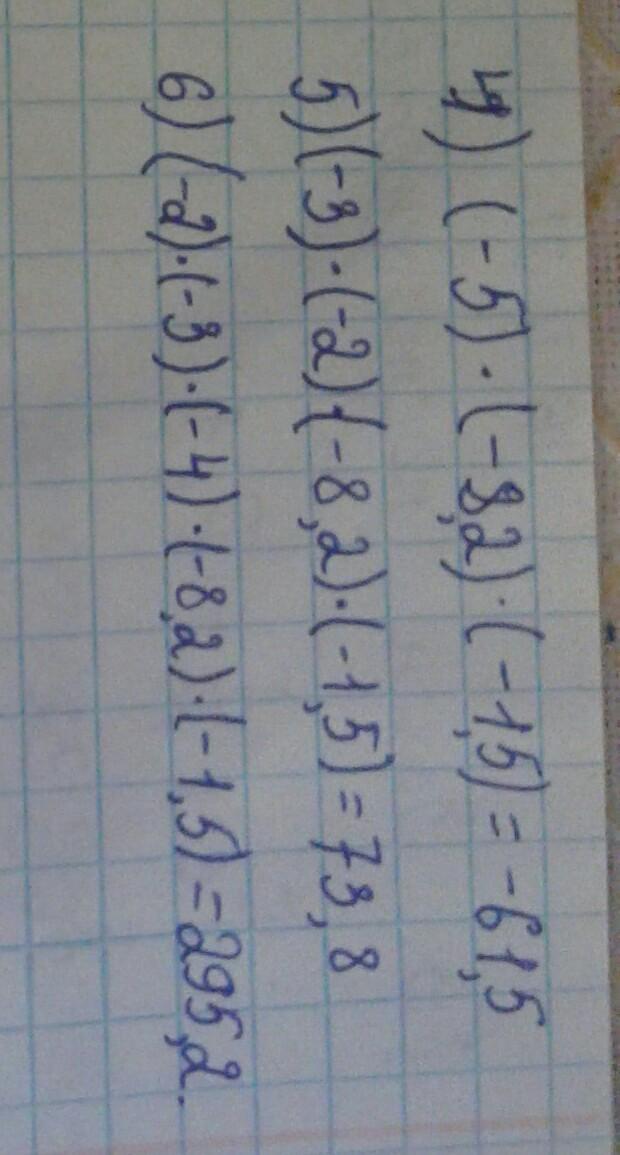 4) (-5)·(-8,2)·(-1,5)=-61,5
5) (-3)·(-2)·(-8,2)·(-1,5)=73,8
6) (-2)·(-3)·(-4)·(-8,2)·(-1,5)=295,2.